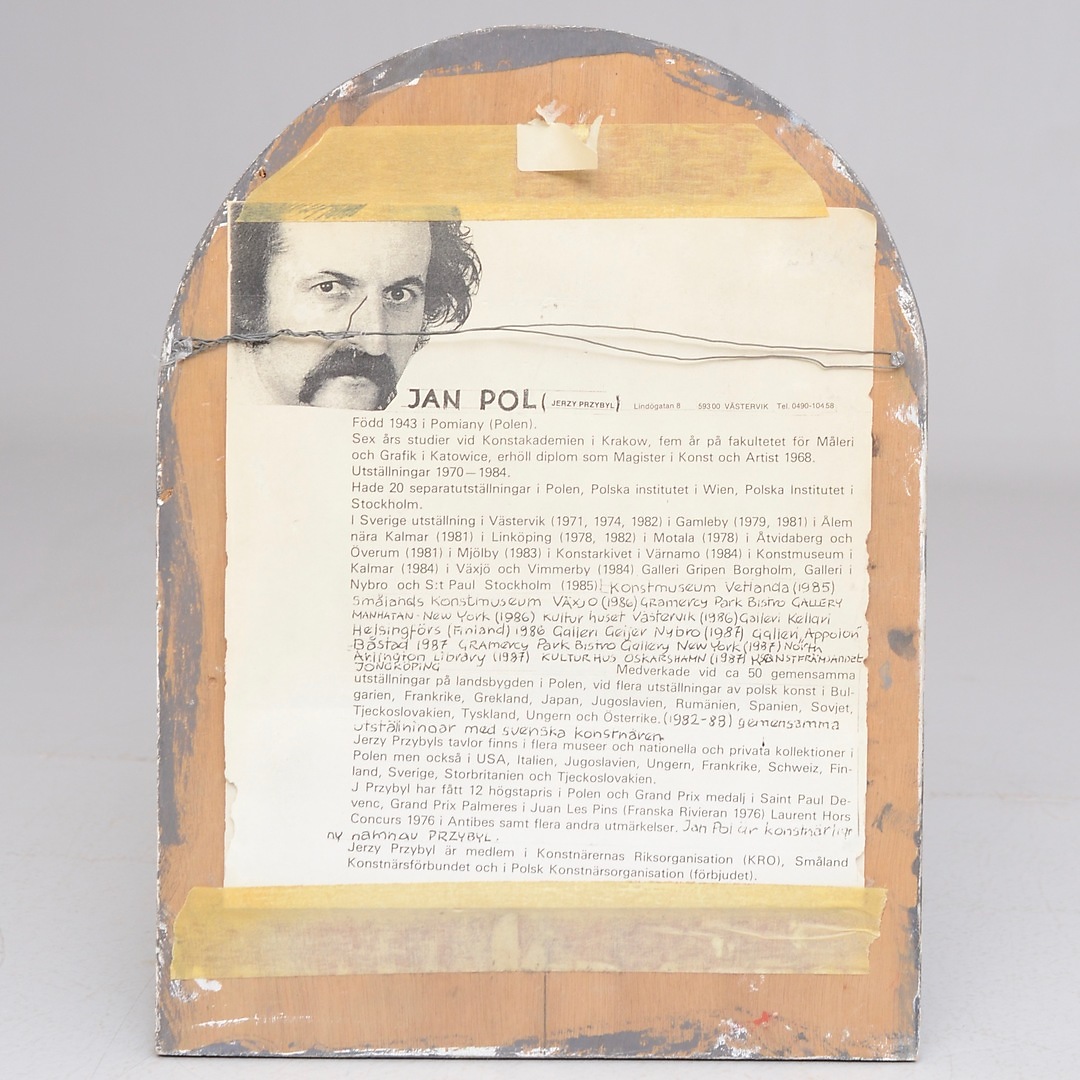 JAN POL ( JERZY PRZYBYL) Lindögatan 8 593 00 VÄSTERVIK Tel. 0490-104 58
Född 1943 i Pomiany (Polen).
Sex års studier vid Konstakademien i Krakow, fem år på fakultetet för Måleri
och Grafik i Katowice, erhöll diplom som Magister i Konst och Artist 1968.
Utställningar 1970—1984.
Hade 20 separatutställningar i Polen, Polska institutet i Wien, Polska Institutet i
Stockholm.
I Sverige utställning i Västervik (1971, 1974, 1982) i Gamleby (1979, 1981) i Ålem
nära Kalmar (1981) i Linköping (1978, 1982) i Motala (1978) i Åtvidaberg och
Överum (1981) i Mjölby (1983) i Konstarkivet i Värnamo (1984) i Konstmuseum i
Kalmar (1984) i Växjö och Vimmerby (1984) Galleri Gripen Borgholm, Galleri i
Nybro och S:t Paul Stockholm (1985) Konstmuseum Vetlanda (1985)
Smålands Konstmuseum VÄXJO (1986) GRamercy Park Bistro GALLERY
MANHATAN - New York (1986) Kultur huset Västervik (1986) Galleri Kellari
Helsingförs (Finland) 1986 Galleri Geijer Nybro (1987) Galleri Appolon
Båstad 1987 GRAmercy Park Bistro Gallery New York (1987) North
Arlington Library (1987) KULTURHUS OSKARSHAMN (1987) KONSTFRÄMJANDET
JÖNGKÖPING Medverkade vid ca 50 gemensamma
utställningar på landsbygden i Polen, vid flera utställningar av polsk konst i Bul-
garien, Frankrike, Grekland, Japan, Jugoslavien, Rumänien, Spanien, Sovjet,
Tjeckoslovakien, Tyskland, Ungern och Österrike. (1982-88) gemensamma
utställningar med svenska konstnären.
Jerzy Przybyls tavlor finns i flera museer och nationella och privata kollektioner i
Polen men också i USA, Italien, Jugoslavien, Ungern, Frankrike, Schweiz, Fin-
land, Sverige, Storbritanien och Tjeckoslovakien.
J Przybyl har fått 12 högstapris i Polen och Grand Prix medalj i Saint Paul De-
venc, Grand Prix Palmeres i Juan Les Pins (Franska Rivieran 1976) Laurent Hors
Concurs 1976 i Antibes samt flera andra utmärkelser. Jan Pol är konstnärligt
ny namnav PRZYBYL.
Jerzy Przybyl är medlem i Konstnärernas Riksorganisation (KRO), Småland
Konstnärsförbundet och i Polsk Konstnärsorganisation (förbjudet).